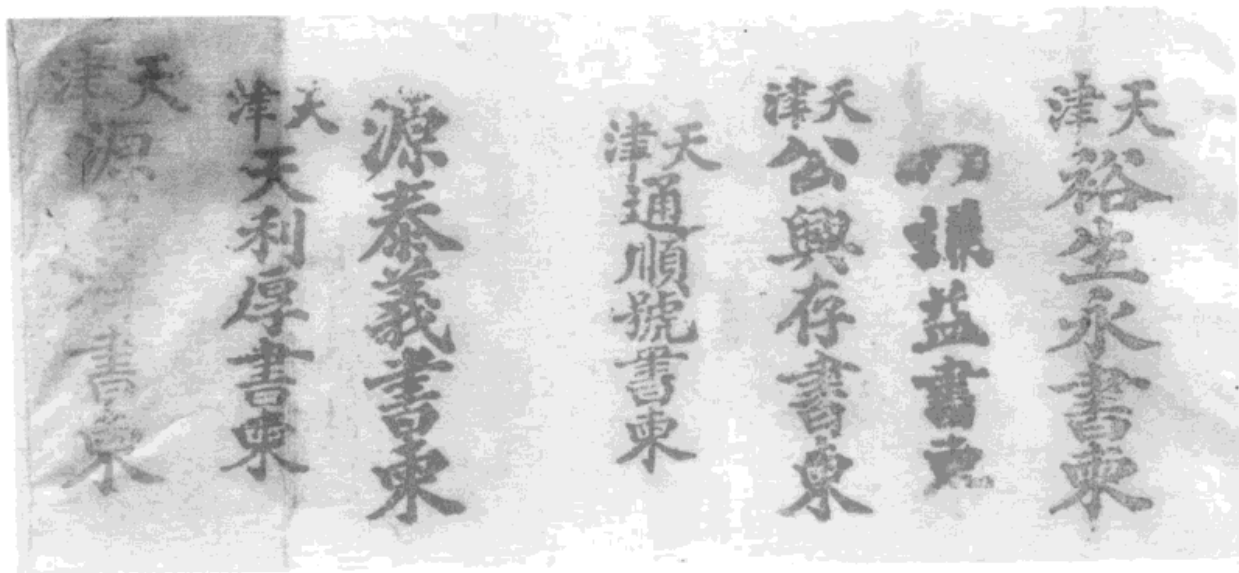 天津裕生永書柬
益書柬
天津公興存書柬
天津通順號書柬
源泰義書柬
天津天利厚書柬
天津源書柬